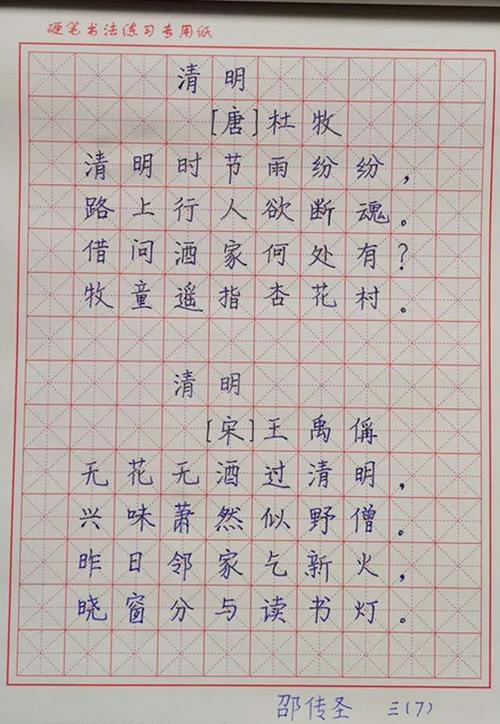 硬笔书法练习专用纸
清明
[唐]杜牧
清明时节雨纷纷，
路上行人欲断魂。
借问酒家何处有？
牧童遥指杏花村。
清明
[宋]王禹偁
无花无酒过清明，
兴味萧然似野僧。
昨日邻家乞新火，
晓窗分与读书灯。
邵传圣 三(7)